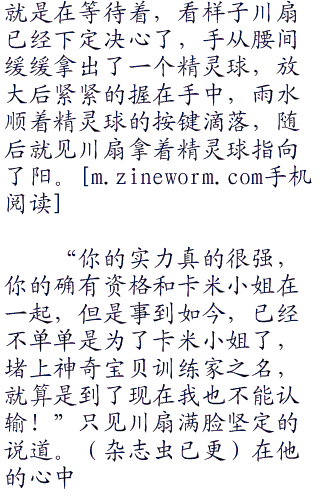 就是在等待着，看样子川扇
已经下定决心了，手从腰间
缓缓拿出了一个精灵球，放
大后紧紧的握在手中，雨水
顺着精灵球的按键滴落，随
后就见川扇拿着精灵球指向
了阳。[m.zineworm.com手机
阅读]
“你的实力真的很强，
你的确有资格和卡米小姐在
一起，但是事到如今，已经
不单单是为了卡米小姐了，
堵上神奇宝贝训练家之名，
就算是到了现在我也不能认
输！”只见川扇满脸坚定的
说道。（杂志虫已更）在他
的心中